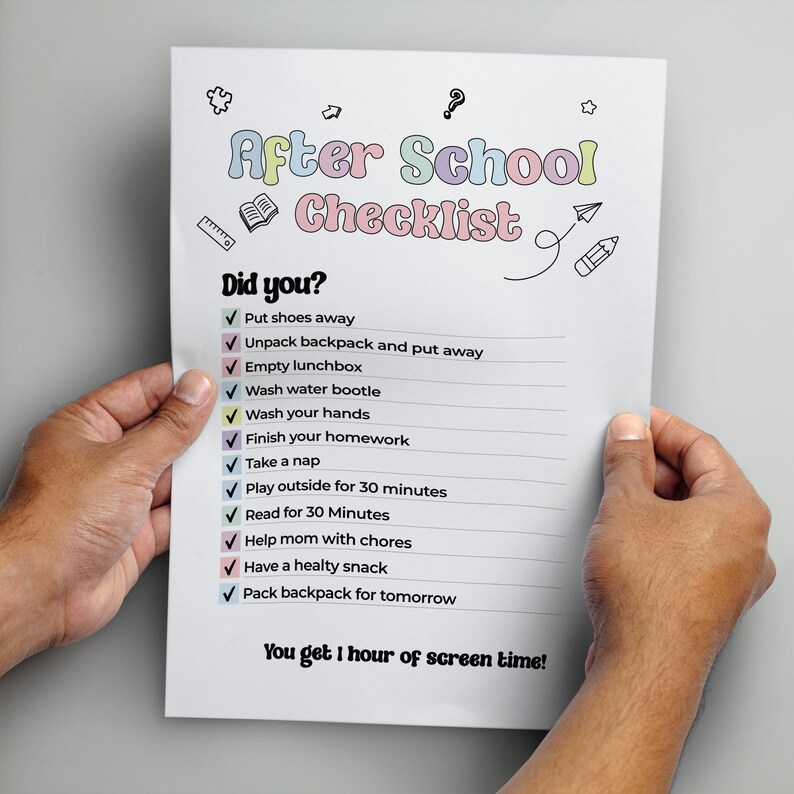 After School
Checklist
Did you?
Put shoes away
Unpack backpack and put away
Empty lunchbox
Wash water bootle
Wash your hands
Finish your homework
Take a nap
Play outside for 30 minutes
Read for 30 Minutes
Help mom with chores
Have a healty snack
Pack backpack for tomorrow
You get 1 hour of screen time!